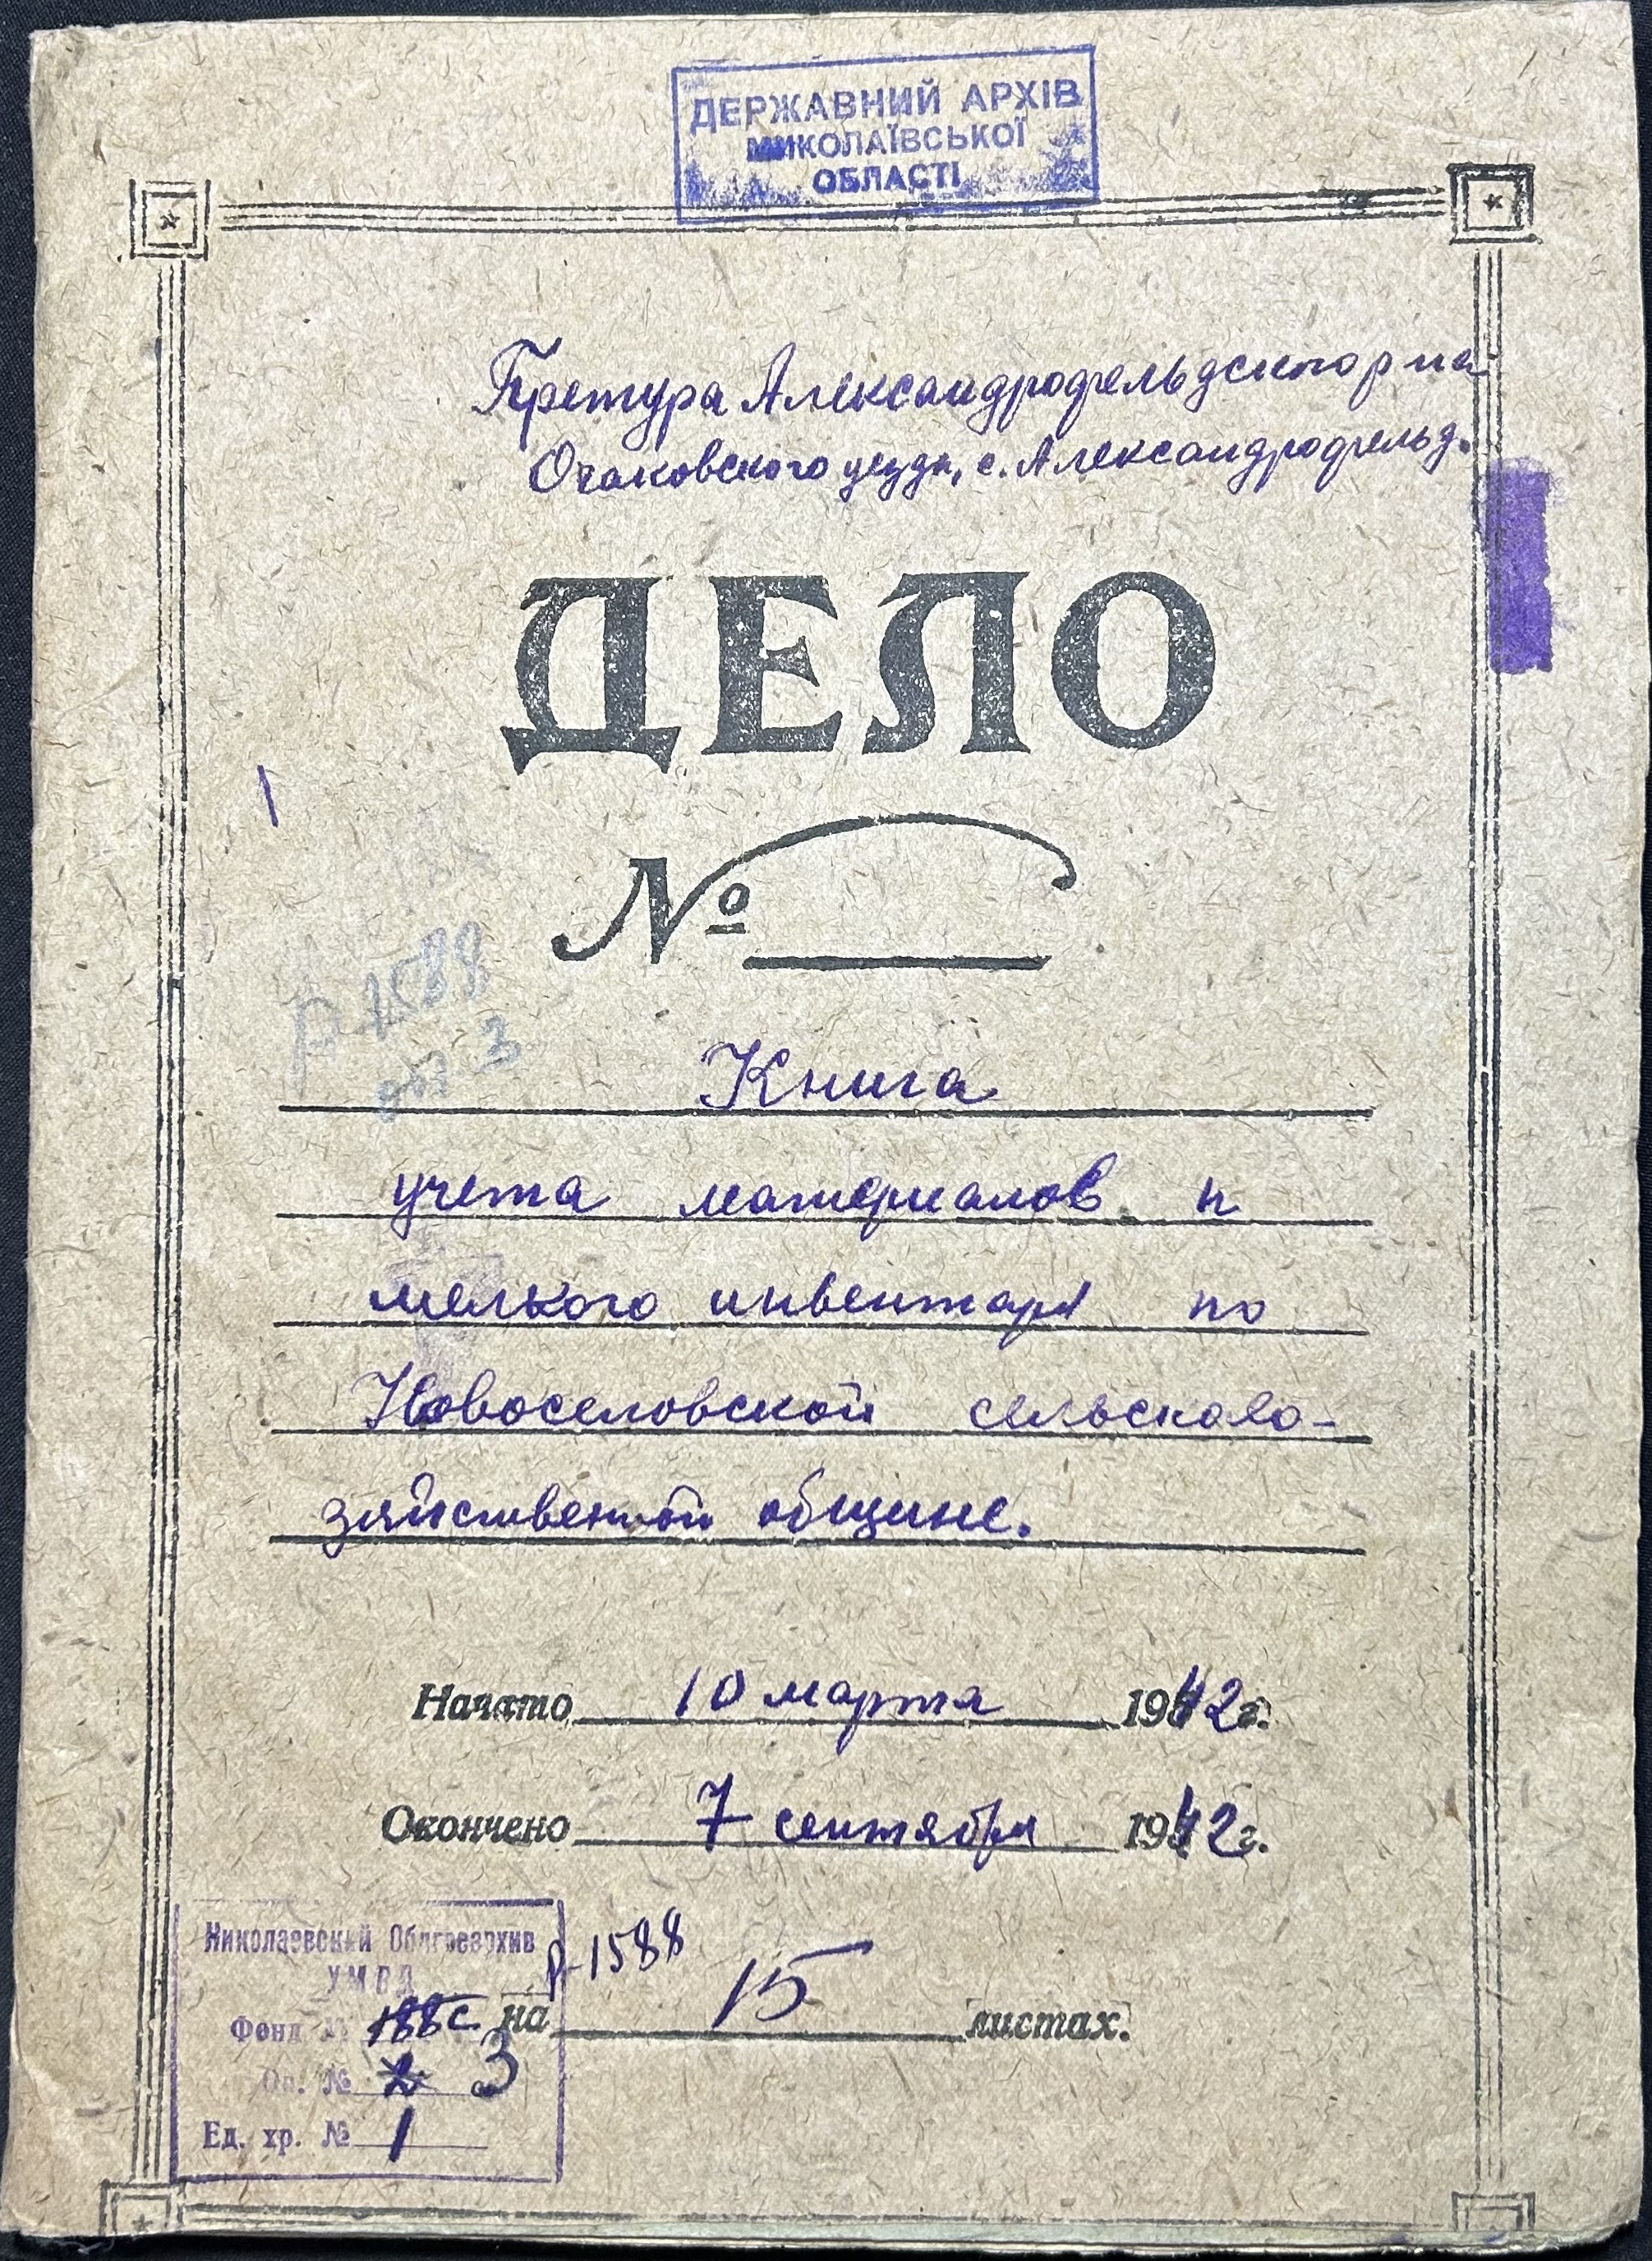 ДЕРЖАВНИЙ АРХІВ
МИКОЛАЇВСЬКОЇ
ОБЛАСТІ
Претура Александрофельдского р-на
Очаковского уезда, с. Александрофельд.
ДЕЛО
№
Р-1588
оп. 3
Книга
учета материалов и
мелкого инвентаря по
Новоселовской сельскохо-
зяйственной общине.
Начато 10 марта 1942 г.
Окончено 7 сентября 1942 г.
Николаевский Облгосархив
УМВД
Р-1588
Фонд № 188с на 15 листах.
Оп. № 2 3
Ед. хр. № 1